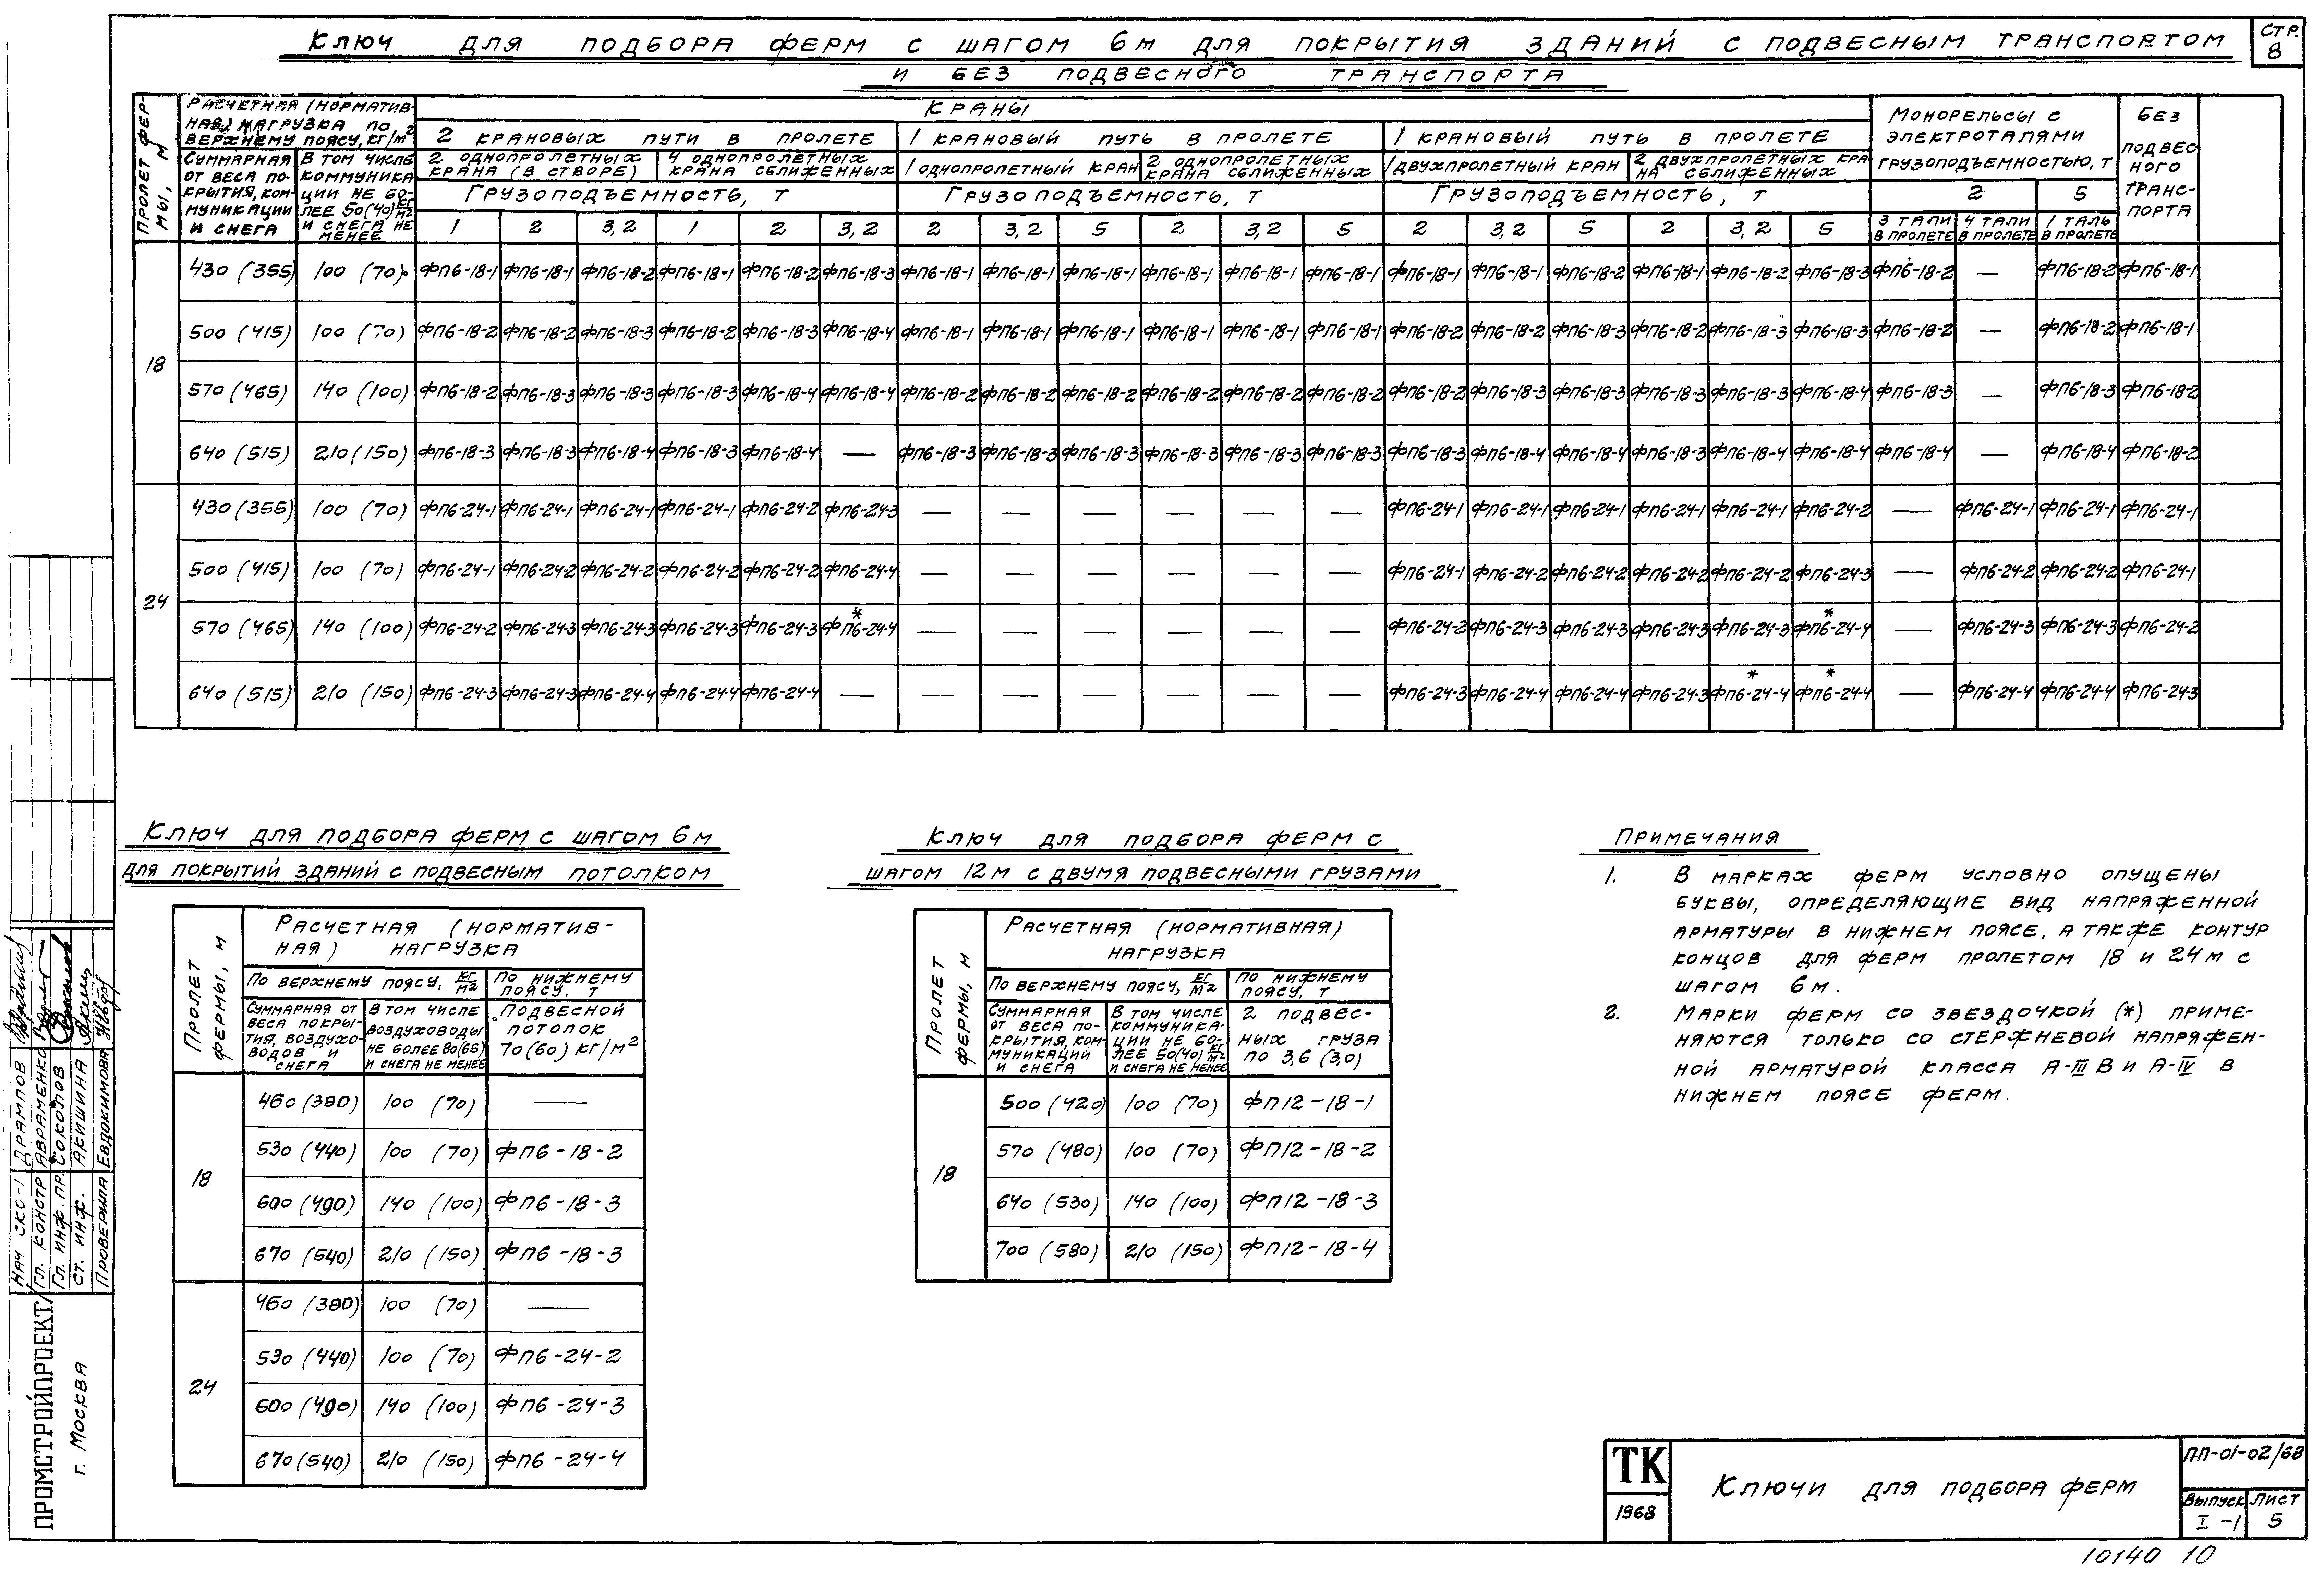 СТР. 8
КЛЮЧ ДЛЯ ПОДБОРА ФЕРМ С ШАГОМ 6 М ДЛЯ ПОКРЫТИЯ ЗДАНИЙ С ПОДВЕСНЫМ ТРАНСПОРТОМ
И БЕЗ ПОДВЕСНОГО ТРАНСПОРТА
ПРОЛЕТ ФЕР-
МЫ, М
РАСЧЕТНАЯ (НОРМАТИВ-
НАЯ) НАГРУЗКА ПО
ВЕРХНЕМУ ПОЯСУ, КГ/М2
СУММАРНАЯ
ОТ ВЕСА ПО-
КРЫТИЯ, КОМ-
МУНИКАЦИИ
И СНЕГА
В ТОМ ЧИСЛЕ
КОММУНИКА
ЦИИ НЕ БО-
ЛЕЕ 50(40) КГ/М2
И СНЕГА НЕ
МЕНЕЕ
КРАНЫ
2 КРАНОВЫХ ПУТИ В ПРОЛЕТЕ
1 КРАНОВЫЙ ПУТЬ В ПРОЛЕТЕ
1 КРАНОВЫЙ ПУТЬ В ПРОЛЕТЕ
2 ОДНОПРОЛЕТНЫХ
КРАНА (В СТВОРЕ)
4 ОДНОПРОЛЕТНЫХ
КРАНА СБЛИЖЕННЫХ
1 ОДНОПРОЛЕТНЫЙ КРАН
2 ОДНОПРОЛЕТНЫХ
КРАНА СБЛИЖЕННЫХ
1 ДВУХПРОЛЕТНЫЙ КРАН
2 ДВУХПРОЛЕТНЫХ КРА
НА СБЛИЖЕННЫХ
ГРУЗОПОДЪЕМНОСТЬ, Т
ГРУЗОПОДЪЕМНОСТЬ, Т
ГРУЗОПОДЪЕМНОСТЬ, Т
1 2 3,2 1 2 3,2 2 3,2 5 2 3,2 5 2 3,2 5 2 3,2 5
МОНОРЕЛЬСЫ С
ЭЛЕКТРОТАЛЯМИ
ГРУЗОПОДЪЕМНОСТЬЮ, Т
2 5
3 ТАЛИ
В ПРОЛЕТЕ
4 ТАЛИ
В ПРОЛЕТЕ
1 ТАЛЬ
В ПРОЛЕТЕ
БЕЗ
ПОДВЕС
НОГО
ТРАНС-
ПОРТА
18
430 (355) 100 (70) ФП6-18-1 ФП6-18-1 ФП6-18-2 ФП6-18-1 ФП6-18-2 ФП6-18-3 ФП6-18-1 ФП6-18-1 ФП6-18-1 ФП6-18-1 ФП6-18-1 ФП6-18-1 ФП6-18-1 ФП6-18-1 ФП6-18-2 ФП6-18-1 ФП6-18-2 ФП6-18-3 ФП6-18-2 — ФП6-18-2 ФП6-18-1
500 (415) 100 (70) ФП6-18-2 ФП6-18-2 ФП6-18-3 ФП6-18-2 ФП6-18-3 ФП6-18-4 ФП6-18-1 ФП6-18-1 ФП6-18-1 ФП6-18-1 ФП6-18-1 ФП6-18-1 ФП6-18-2 ФП6-18-2 ФП6-18-3 ФП6-18-2 ФП6-18-3 ФП6-18-3 ФП6-18-2 — ФП6-18-2 ФП6-18-1
570 (465) 140 (100) ФП6-18-2 ФП6-18-3 ФП6-18-3 ФП6-18-3 ФП6-18-4 ФП6-18-4 ФП6-18-2 ФП6-18-2 ФП6-18-2 ФП6-18-2 ФП6-18-2 ФП6-18-2 ФП6-18-2 ФП6-18-3 ФП6-18-3 ФП6-18-3 ФП6-18-3 ФП6-18-4 ФП6-18-3 — ФП6-18-3 ФП6-18-2
640 (515) 210 (150) ФП6-18-3 ФП6-18-3 ФП6-18-4 ФП6-18-3 ФП6-18-4 — ФП6-18-3 ФП6-18-3 ФП6-18-3 ФП6-18-3 ФП6-18-3 ФП6-18-3 ФП6-18-3 ФП6-18-4 ФП6-18-4 ФП6-18-3 ФП6-18-4 ФП6-18-4 ФП6-18-4 — ФП6-18-4 ФП6-18-2
24
430 (355) 100 (70) ФП6-24-1 ФП6-24-1 ФП6-24-1 ФП6-24-1 ФП6-24-2 ФП6-24-3 — — — — — — ФП6-24-1 ФП6-24-1 ФП6-24-1 ФП6-24-1 ФП6-24-1 ФП6-24-2 — ФП6-24-1 ФП6-24-1 ФП6-24-1
500 (415) 100 (70) ФП6-24-1 ФП6-24-2 ФП6-24-2 ФП6-24-2 ФП6-24-2 ФП6-24-4 — — — — — — ФП6-24-1 ФП6-24-2 ФП6-24-2 ФП6-24-2 ФП6-24-2 ФП6-24-3 — ФП6-24-2 ФП6-24-2 ФП6-24-1
570 (465) 140 (100) ФП6-24-2 ФП6-24-3 ФП6-24-3 ФП6-24-3 ФП6-24-3 ФП6-24-4* — — — — — — ФП6-24-2 ФП6-24-3 ФП6-24-3 ФП6-24-3 ФП6-24-3 ФП6-24-4* — ФП6-24-3 ФП6-24-3 ФП6-24-2
640 (515) 210 (150) ФП6-24-3 ФП6-24-3 ФП6-24-4 ФП6-24-4 ФП6-24-4 — — — — — — — ФП6-24-3 ФП6-24-4 ФП6-24-4 ФП6-24-3 ФП6-24-4* ФП6-24-4* — ФП6-24-4 ФП6-24-4 ФП6-24-3
КЛЮЧ ДЛЯ ПОДБОРА ФЕРМ С ШАГОМ 6 М
ДЛЯ ПОКРЫТИЙ ЗДАНИЙ С ПОДВЕСНЫМ ПОТОЛКОМ
ПРОЛЕТ
ФЕРМЫ, М
РАСЧЕТНАЯ (НОРМАТИВ-
НАЯ) НАГРУЗКА
ПО ВЕРХНЕМУ ПОЯСУ, КГ/М2
ПО НИЖНЕМУ
ПОЯСУ, Т
СУММАРНАЯ ОТ
ВЕСА ПОКРЫ-
ТИЯ, ВОЗДУХО-
ВОДОВ И
СНЕГА
В ТОМ ЧИСЛЕ
ВОЗДУХОВОДЫ
НЕ БОЛЕЕ 80(65)
И СНЕГА НЕ МЕНЕЕ
ПОДВЕСНОЙ
ПОТОЛОК
70(60) КГ/М2
18
460 (380) 100 (70) —
530 (440) 100 (70) ФП6-18-2
600 (490) 140 (100) ФП6-18-3
670 (540) 210 (150) ФП6-18-3
24
460 (380) 100 (70) —
530 (440) 100 (70) ФП6-24-2
600 (490) 140 (100) ФП6-24-3
670 (540) 210 (150) ФП6-24-4
КЛЮЧ ДЛЯ ПОДБОРА ФЕРМ С
ШАГОМ 12 М С ДВУМЯ ПОДВЕСНЫМИ ГРУЗАМИ
ПРОЛЕТ
ФЕРМЫ, М
РАСЧЕТНАЯ (НОРМАТИВНАЯ)
НАГРУЗКА
ПО ВЕРХНЕМУ ПОЯСУ, КГ/М2
ПО НИЖНЕМУ
ПОЯСУ, Т
СУММАРНАЯ
ОТ ВЕСА ПО-
КРЫТИЯ, КОМ-
МУНИКАЦИЙ
И СНЕГА
В ТОМ ЧИСЛЕ
КОММУНИКА-
ЦИИ НЕ БО-
ЛЕЕ 50(40) КГ/М2
И СНЕГА НЕ МЕНЕЕ
2 ПОДВЕС-
НЫХ ГРУЗА
ПО 3,6 (3,0)
18
500 (420) 100 (70) ФП12-18-1
570 (480) 100 (70) ФП12-18-2
640 (530) 140 (100) ФП12-18-3
700 (580) 210 (150) ФП12-18-4
ПРИМЕЧАНИЯ
1. В МАРКАХ ФЕРМ УСЛОВНО ОПУЩЕНЫ
БУКВЫ, ОПРЕДЕЛЯЮЩИЕ ВИД НАПРЯЖЕННОЙ
АРМАТУРЫ В НИЖНЕМ ПОЯСЕ, А ТАКЖЕ КОНТУР
КОНЦОВ ДЛЯ ФЕРМ ПРОЛЕТОМ 18 И 24 М С
ШАГОМ 6 М.
2. МАРКИ ФЕРМ СО ЗВЕЗДОЧКОЙ (*) ПРИМЕ-
НЯЮТСЯ ТОЛЬКО СО СТЕРЖНЕВОЙ НАПРЯЖЕН-
НОЙ АРМАТУРОЙ КЛАССА А-III В И А-IV В
НИЖНЕМ ПОЯСЕ ФЕРМ.
НАЧ СКО-1 ДРАМПОВ
ГЛ. КОНСТР АВРАМЕНКО
ГЛ. ИНЖ. ПР. СОКОЛОВ
СТ. ИНЖ. АКИШИНА
ПРОВЕРИЛА ЕВДОКИМОВА
ПРОМСТРОЙПРОЕКТ
Г. МОСКВА
ТК
1968
КЛЮЧИ ДЛЯ ПОДБОРА ФЕРМ
ПП-01-02/68
ВЫПУСК I-1
ЛИСТ 5
10140 10